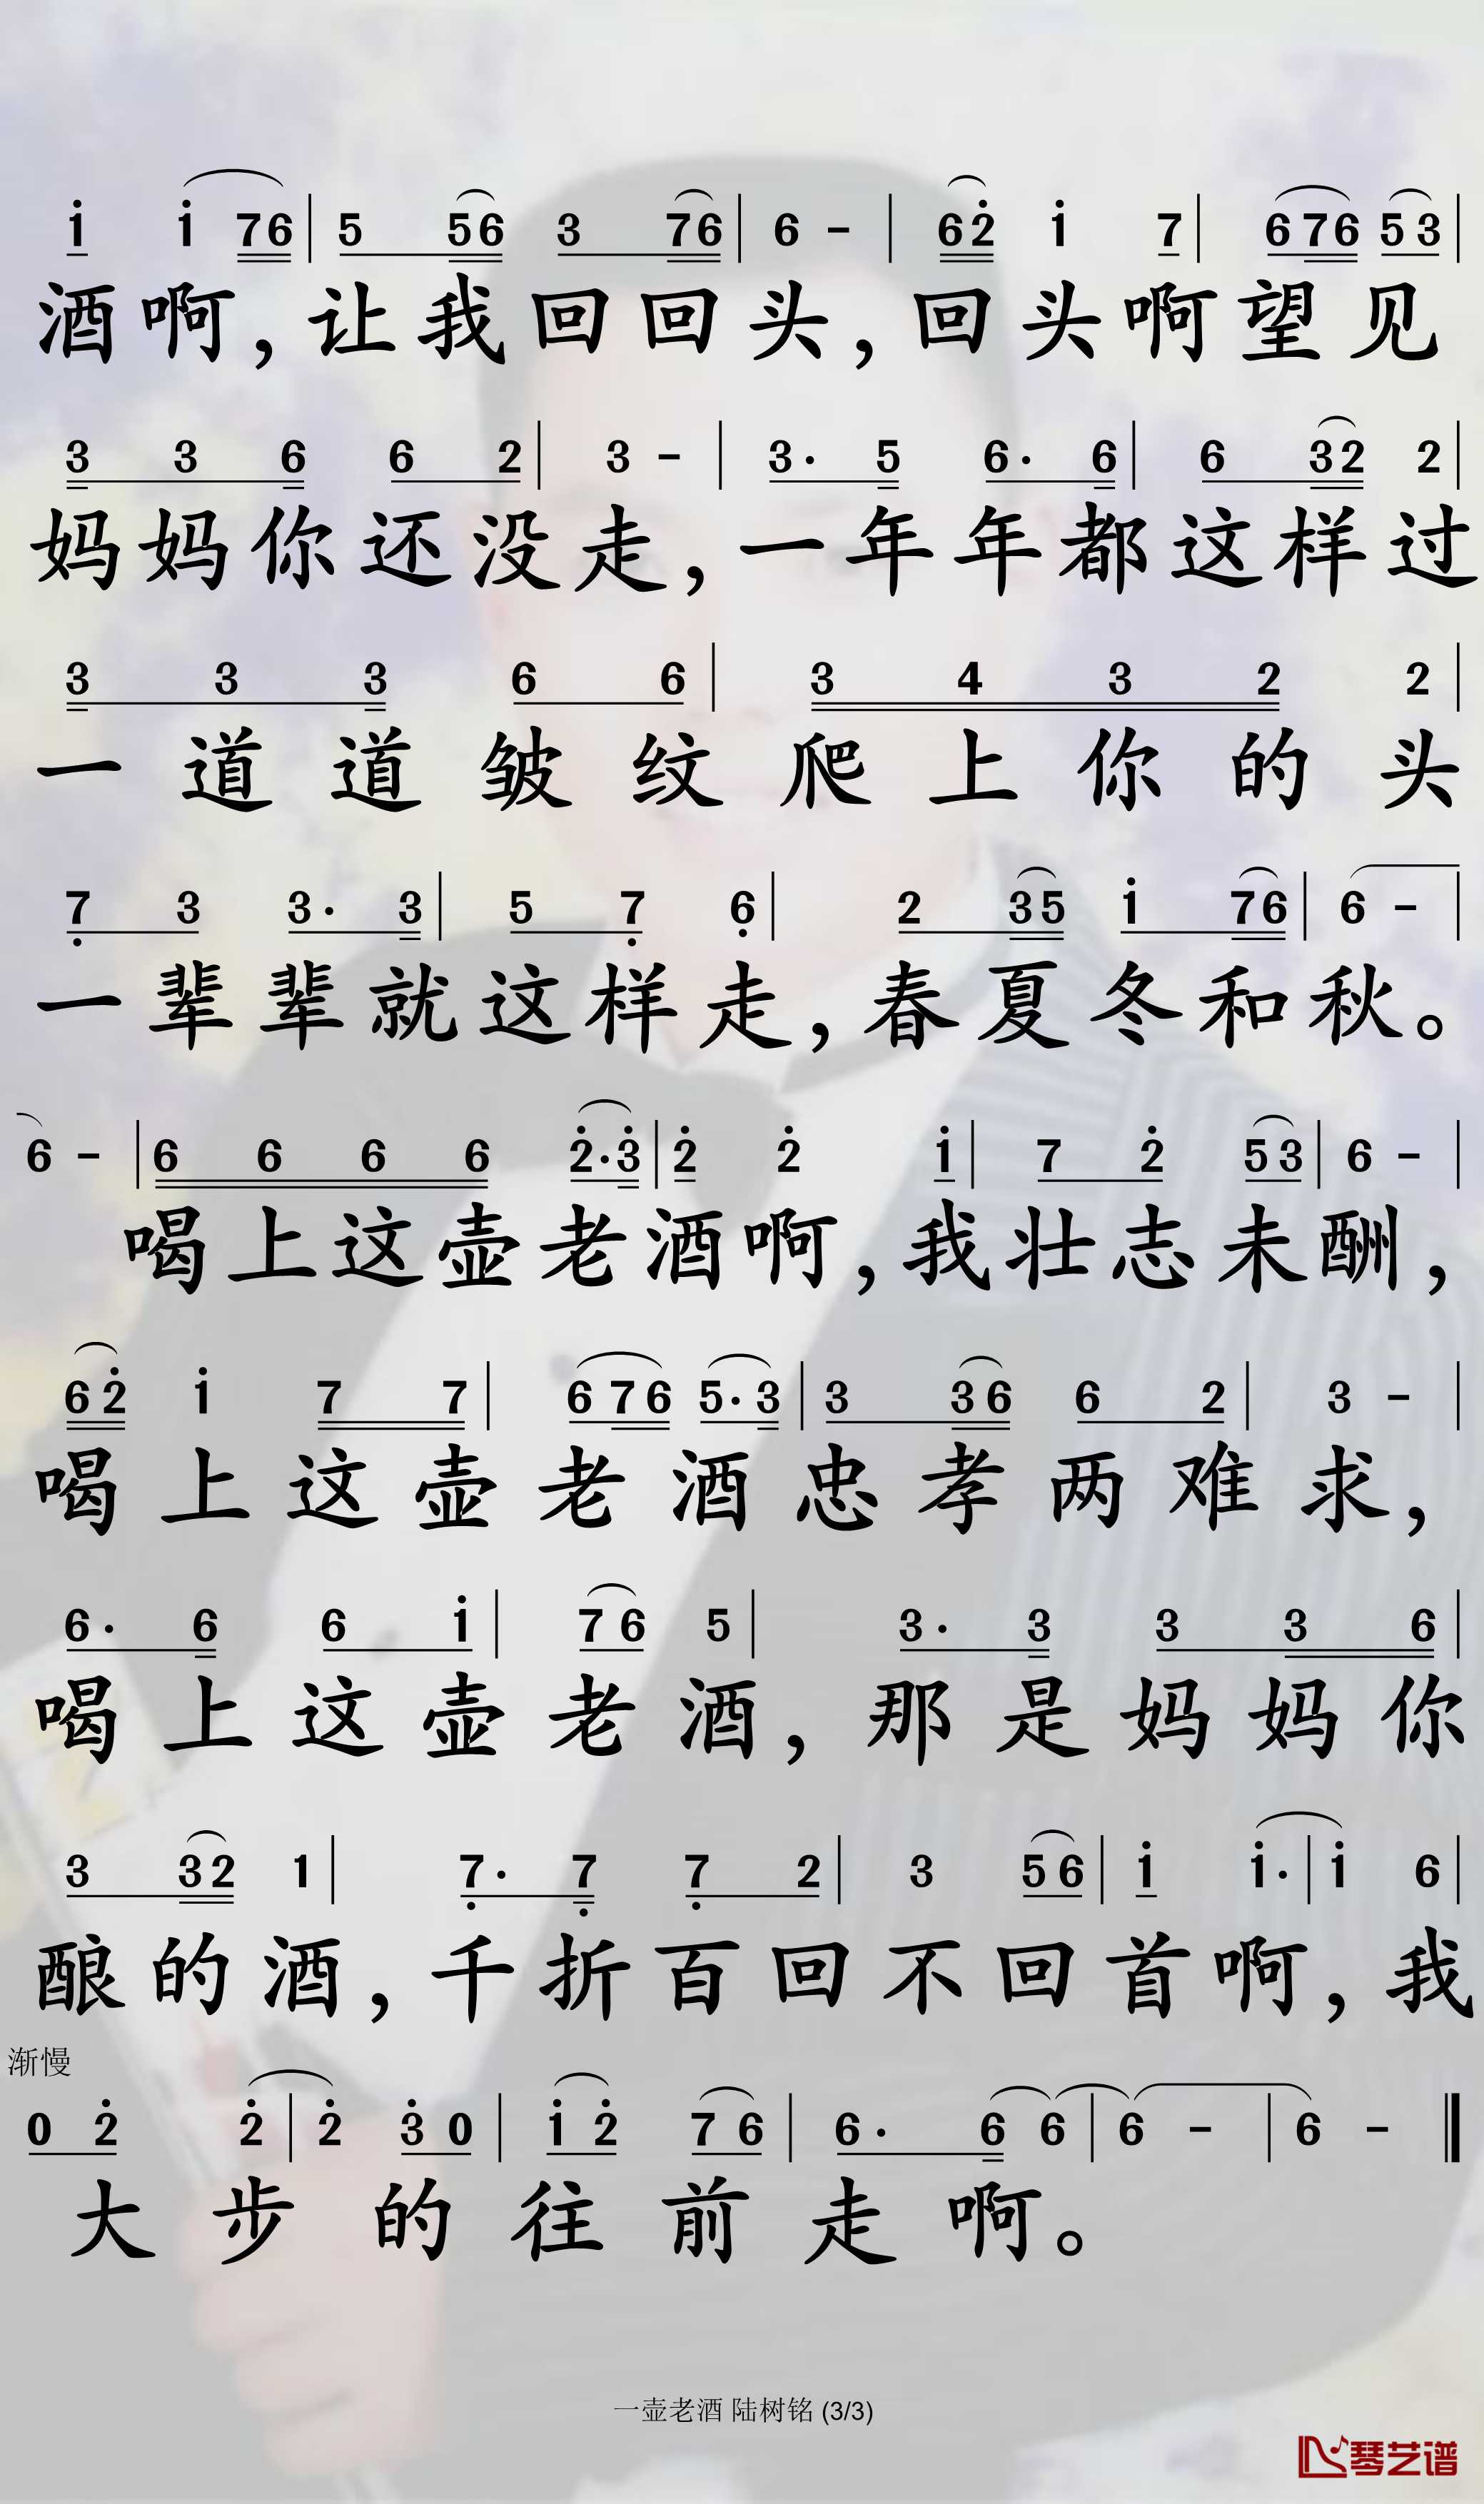 i i 7 6 | 5 5 6 3 7 6 | 6 - | 6 2 i 7 | 6 7 6 5 3 |
酒啊，让我回回头，回头啊望见
3 3 6 6 2 | 3 - | 3· 5 6· 6 | 6 3 2 2 |
妈妈你还没走，一年年都这样过
3 3 3 6 6 | 3 4 3 2 2 |
一道道皱纹爬上你的头
7 3 3· 3 | 5 7 6 | 2 3 5 i 7 6 | 6 - |
一辈辈就这样走，春夏冬和秋。
6 - | 6 6 6 6 2· 3 | 2 2 i | 7 2 5 3 | 6 - |
喝上这壶老酒啊，我壮志未酬，
6 2 i 7 7 | 6 7 6 5· 3 | 3 3 6 6 2 | 3 - |
喝上这壶老酒忠孝两难求，
6· 6 6 i | 7 6 5 | 3· 3 3 3 6 |
喝上这壶老酒，那是妈妈你
3 3 2 1 | 7· 7 7 2 | 3 5 6 | i i· | i 6 |
酿的酒，千折百回不回首啊，我
渐慢
0 2 2 | 2 3 0 | i 2 7 6 | 6· 6 6 | 6 - | 6 - ‖
大步的往前走啊。
一壶老酒 陆树铭 (3/3)
琴艺谱